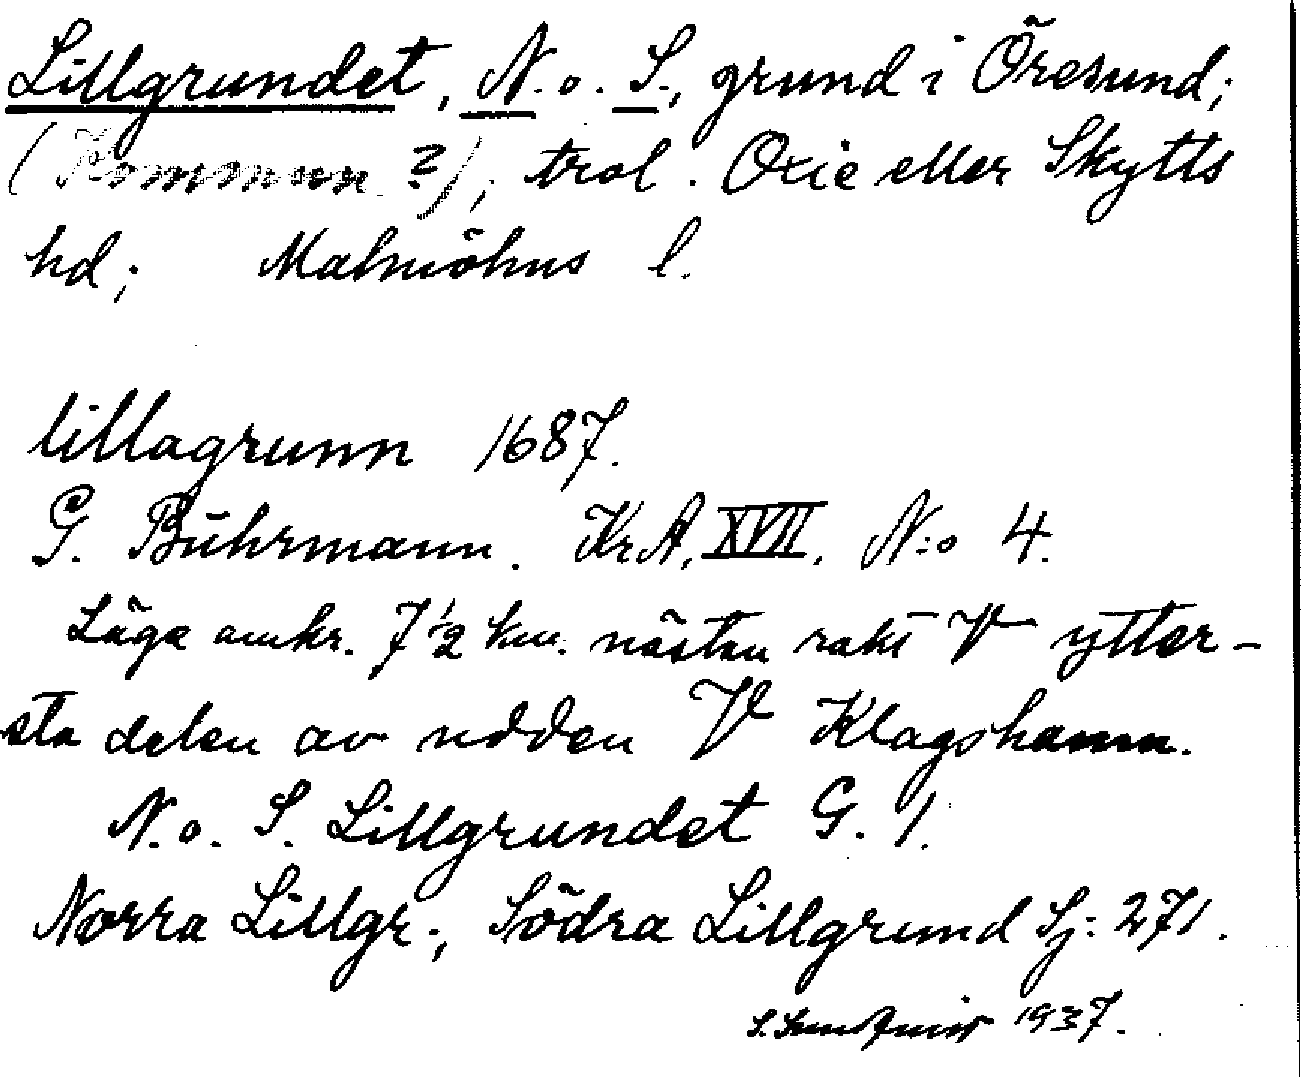 Lillgrundet, N. o. S., grund i Öresund;
(Kommun ?); trol. Oxie eller Skytts
hd; Malmöhus l.
lillagrunn 1687.
G. Bührmann. KrA, XVII, N:o 4.
Läge omkr. 7 1/2 km. nästan rakt V ytter-
sta delen av udden V Klagshamn.
N. o. S. Lillgrundet G. 1.
Norra Lillgr.; Södra Lillgrund Sj: 271.
S. Sundquist 1937.